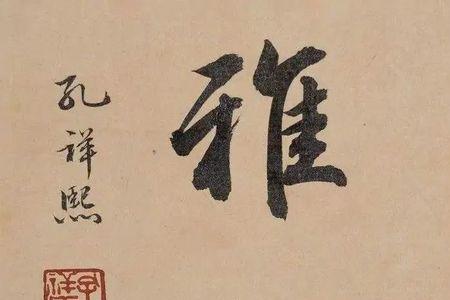 雅
孔祥熙